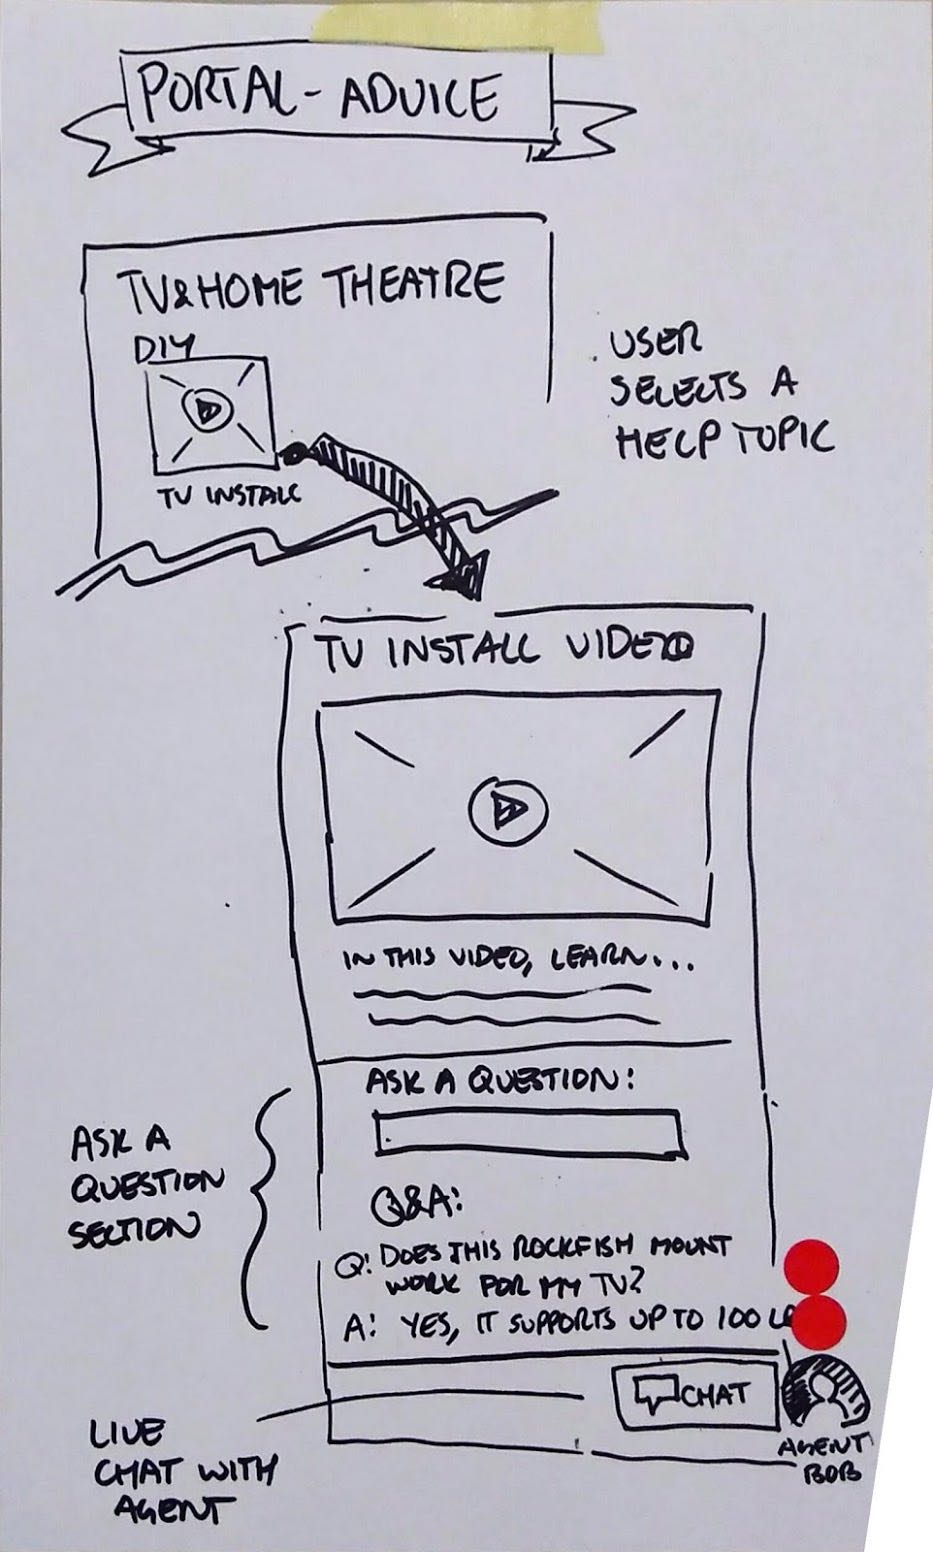 PORTAL - ADVICE
TV & HOME THEATRE
DIY
TV INSTALL
USER
SELECTS A
HELP TOPIC
TV INSTALL VIDEO
IN THIS VIDEO, LEARN...
ASK A QUESTION:
ASK A
QUESTION
SECTION
Q&A:
Q: DOES THIS ROCKFISH MOUNT
WORK FOR MY TV?
A: YES, IT SUPPORTS UP TO 100
CHAT
LIVE
CHAT WITH
AGENT
AGENT
BOB